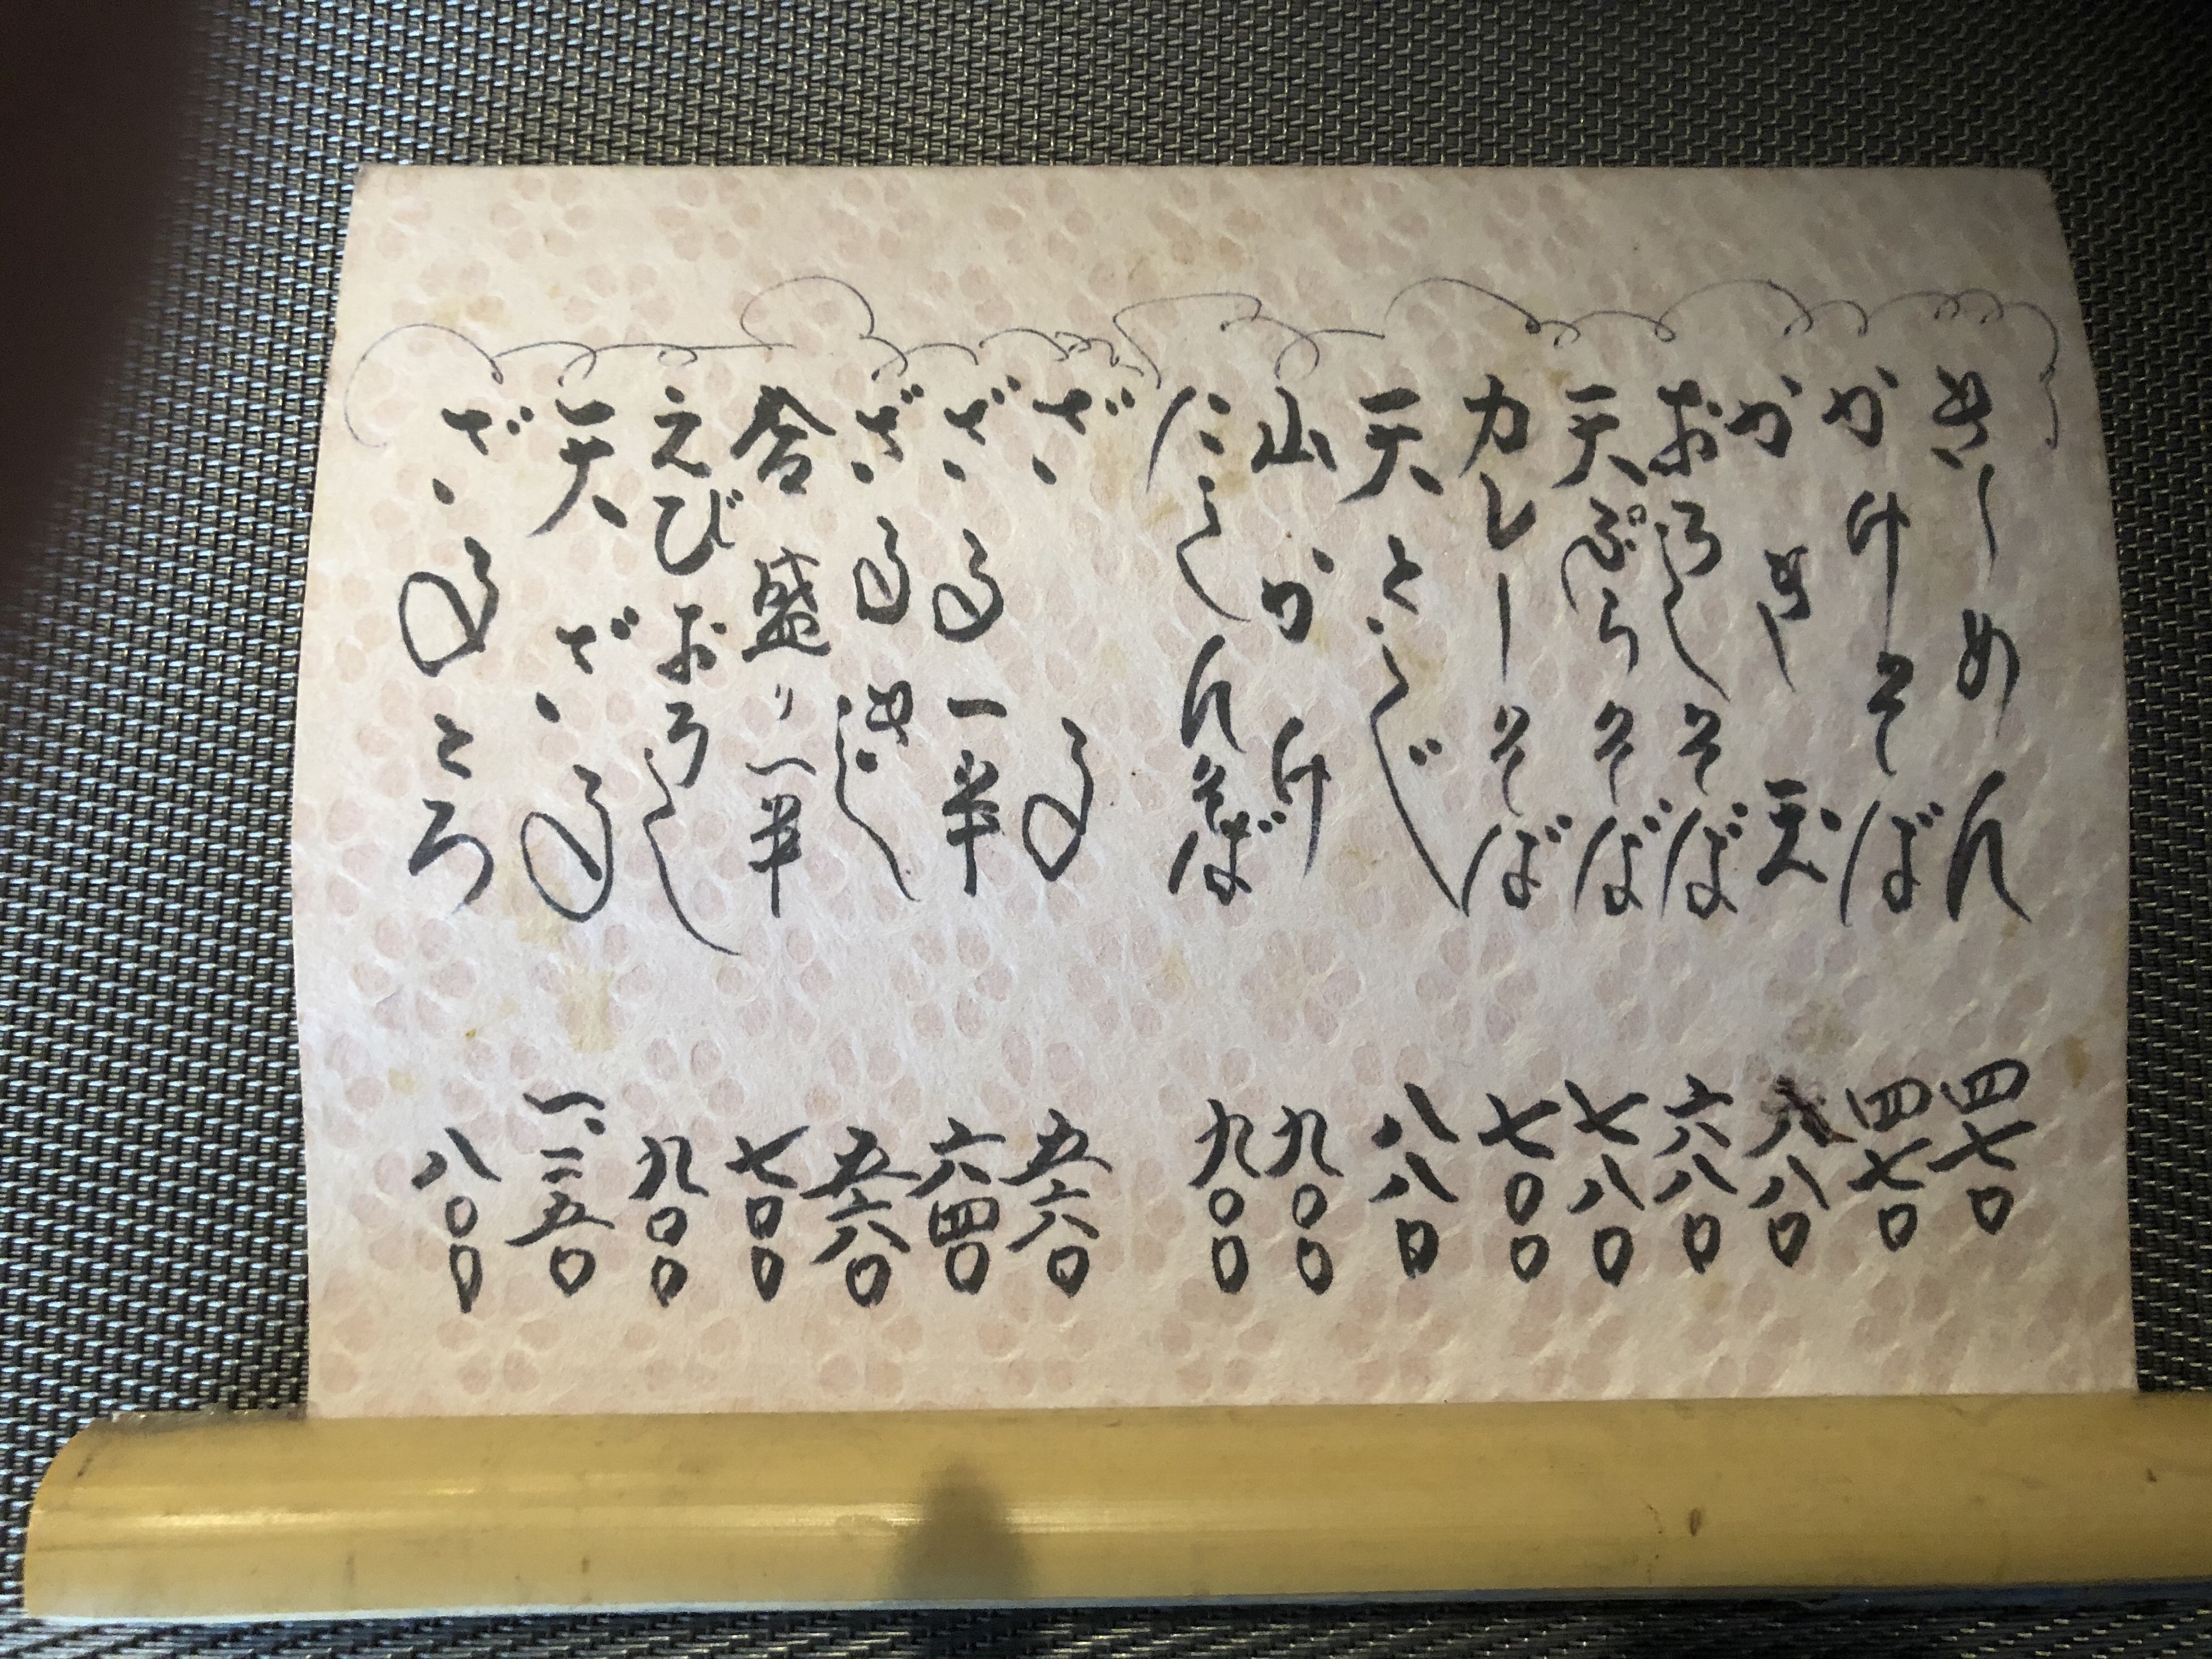 きしめん 四七〇
かけそば 四七〇
かき玉 八〇
おろしそば 六八〇
天ぷらそば 七八〇
カレーそば 七〇〇
天とじ 八八〇
山かけ 九〇〇
にしんそば 九〇〇
ざる 五六〇
ざる一半 六四〇
ざるきし 五六〇
合盛り一半 七〇〇
えびおろし 九〇〇
天ざる 一、二五〇
ざるとろ 八〇〇